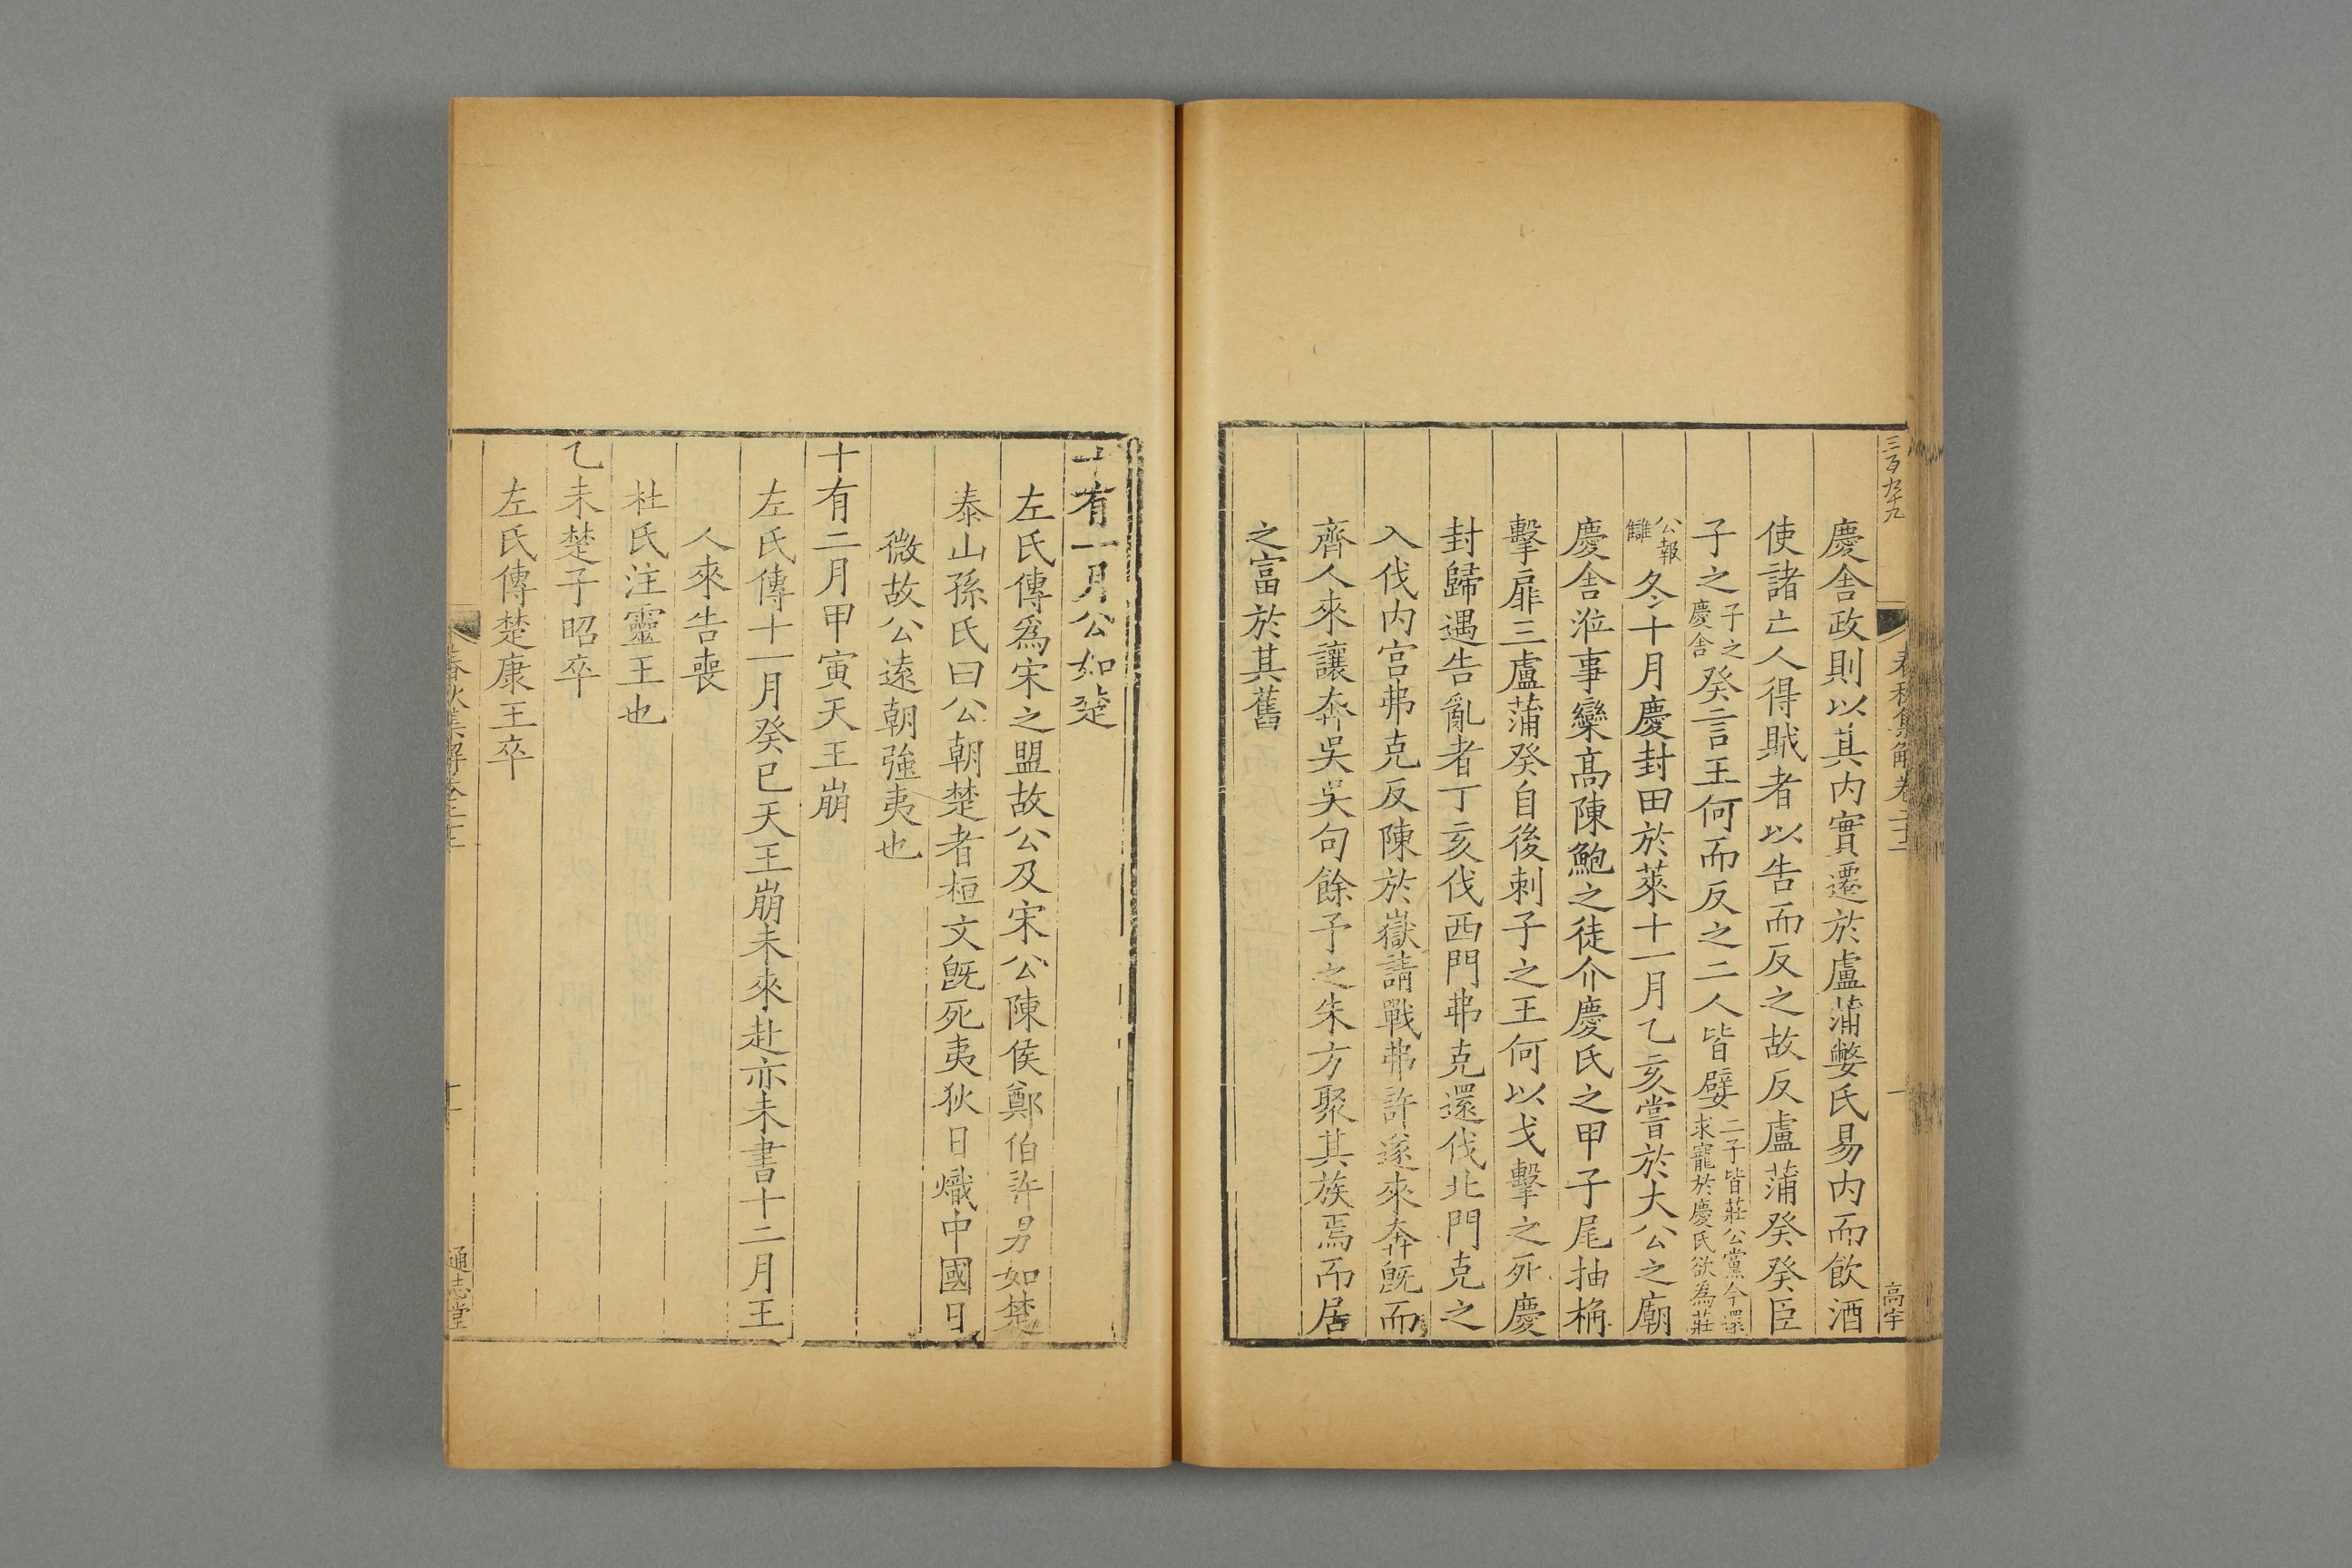 三百九十九
春秋集解卷二十二
一
高宇
慶舎政則以其内實遷於盧蒲嫳氏易内而飲酒
使諸亡人得賊者以告而反之故反盧蒲癸癸臣
子之子之慶舎癸言王何而反之二人皆嬖二子皆莊公黨今還求寵於慶氏欲為莊
公報讎冬十月慶封田於萊十一月乙亥嘗於大公之廟
慶舎涖事欒高陳鮑之徒介慶氏之甲子尾抽桷
擊扉三盧蒲癸自後刺子之王何以戈擊之死慶
封歸遇告亂者丁亥伐西門弗克還伐北門克之
入伐内宫弗克反陳於嶽請戰弗許遂來奔旣而
齊人來讓奔吳吳句餘予之朱方聚其族焉而居
之富於其舊
十有一月公如楚
左氏傳爲宋之盟故公及宋公陳侯鄭伯許男如楚
泰山孫氏曰公朝楚者桓文旣死夷狄日熾中國日
微故公逺朝強夷也
十有二月甲寅天王崩
左氏傳十一月癸巳天王崩未來赴亦未書十二月王
人來告喪
杜氏注靈王也
乙未楚子昭卒
左氏傳楚康王卒
春秋集解卷二十二
通志堂